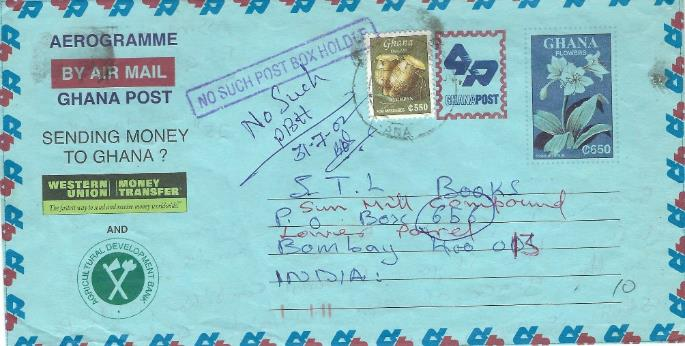 AEROGRAMME
BY AIR MAIL
GHANA POST
SENDING MONEY
TO GHANA ?
WESTERN UNION MONEY TRANSFER
The fastest way to send and receive money worldwide
AND
AGRICULTURAL DEVELOPMENT BANK
NO SUCH POST BOX HOLDER
No Such
PBH
31-7-02
Ghana
₵550
GHANAPOST
GHANA
FLOWERS
₵650
S.T.L Books
Sun Mill Compound
P.O. Box 666
Lower Parel
Bombay 400 013
INDIA.
10